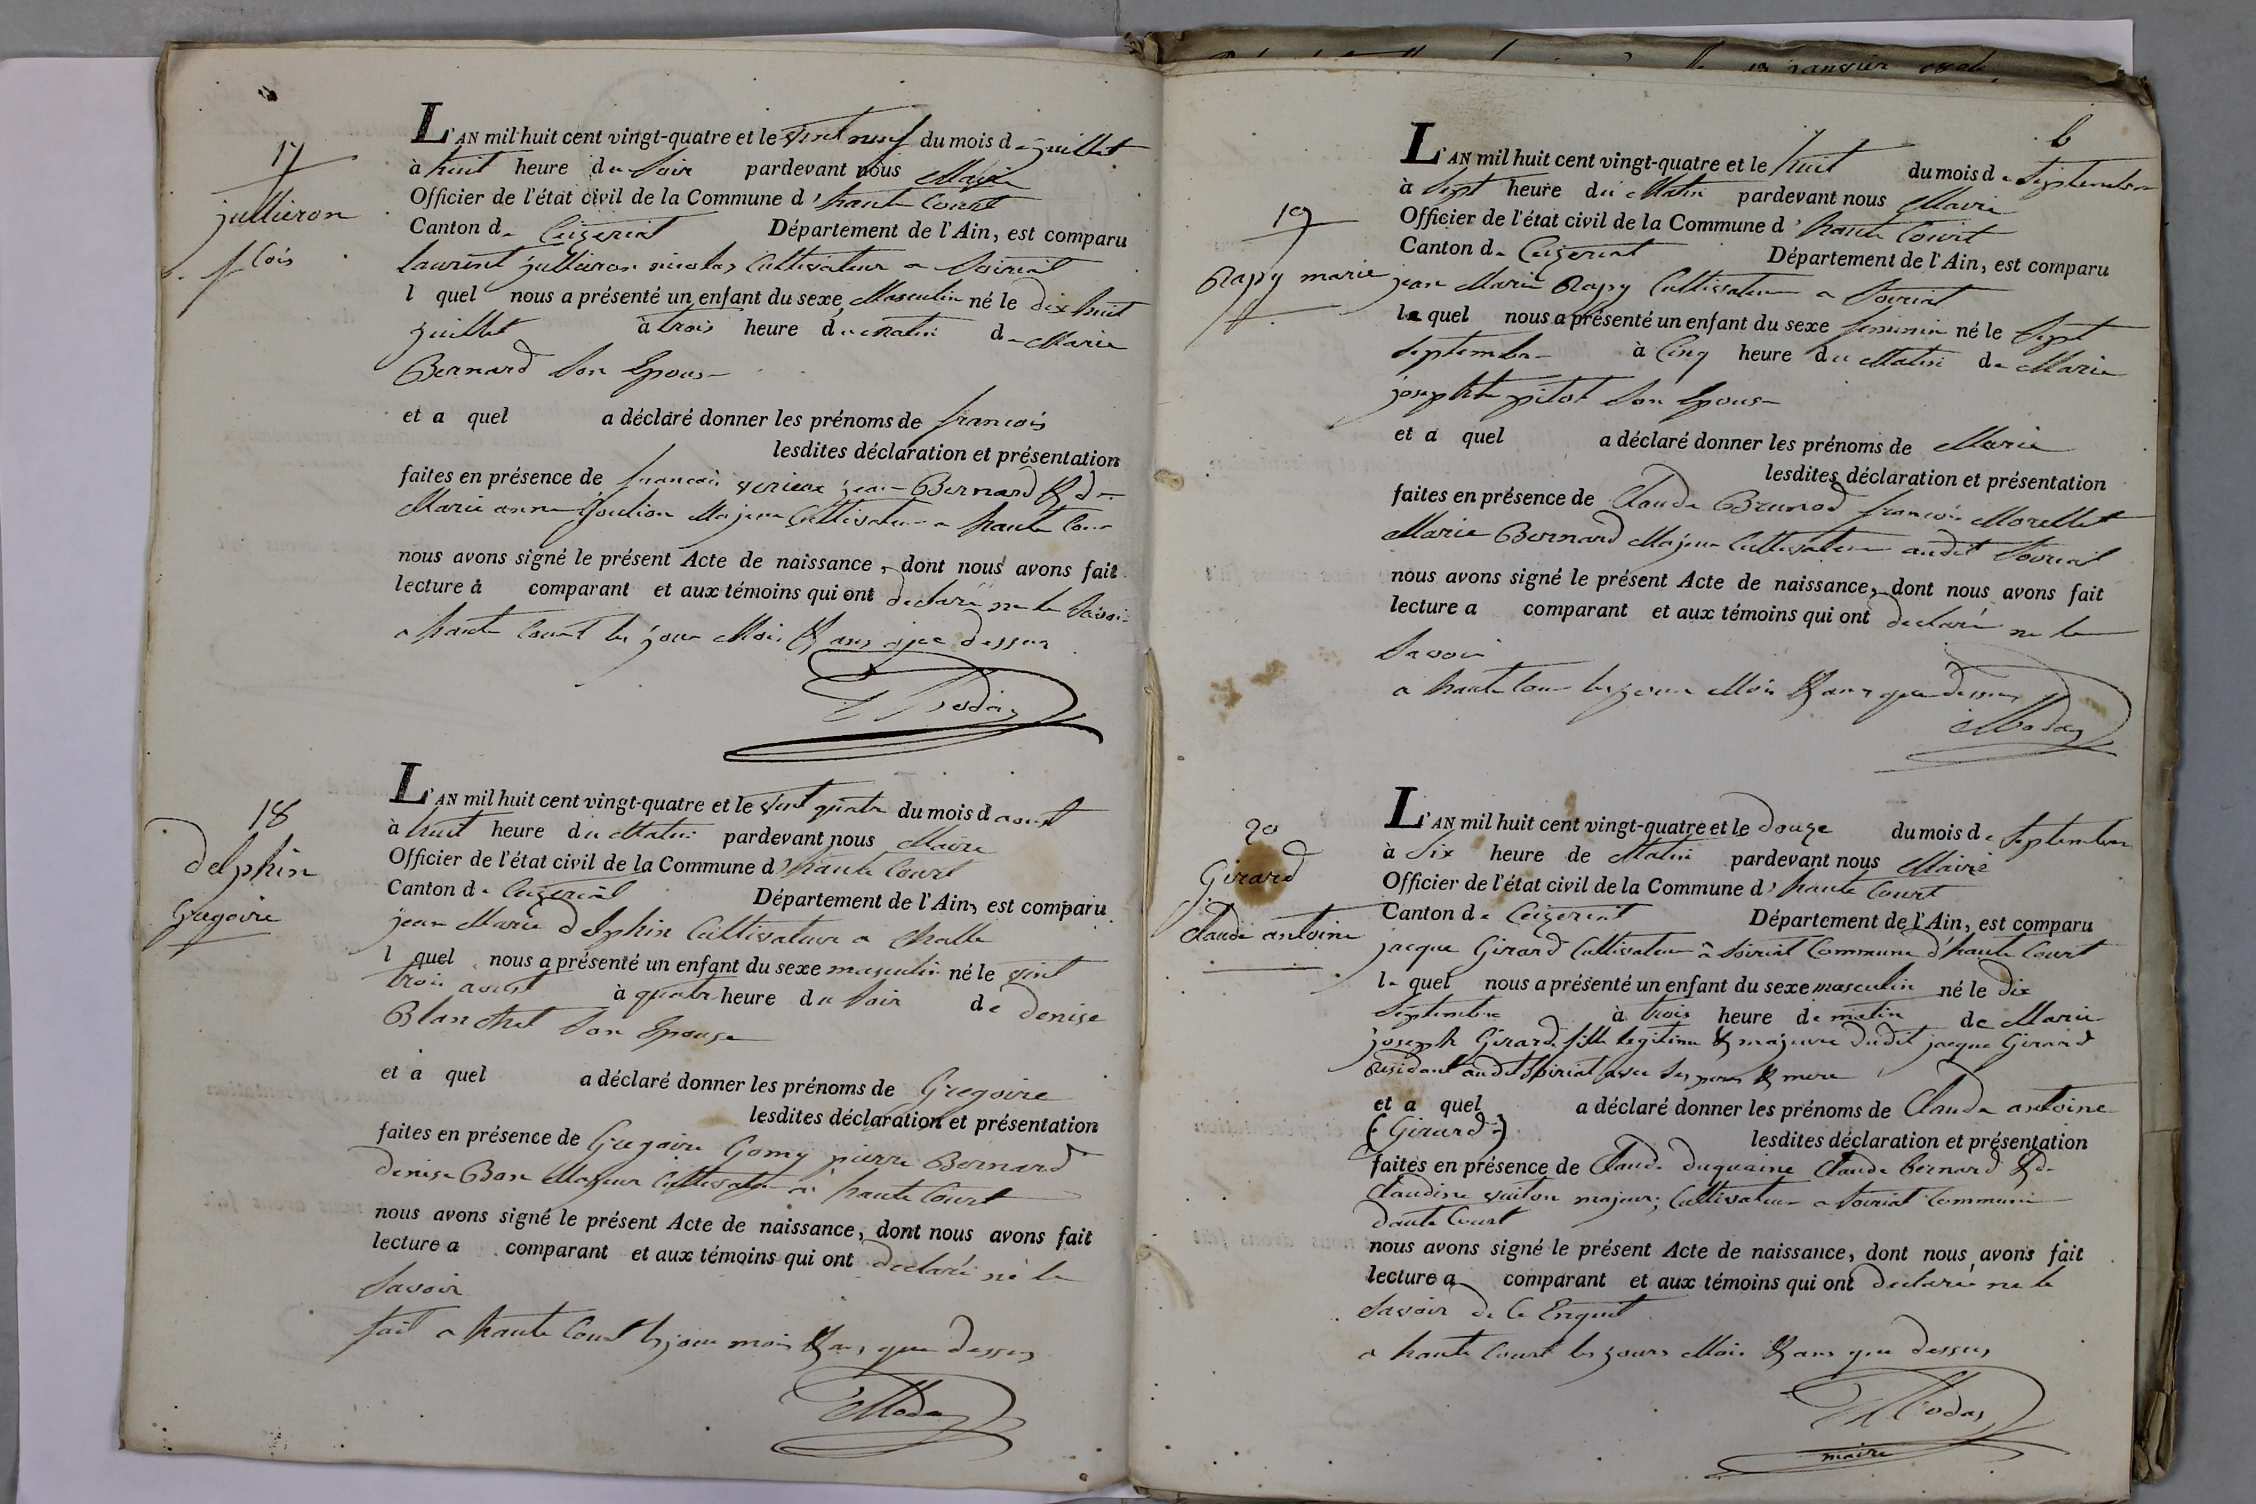 17
jullieron
fcois
L'AN mil huit cent vingt-quatre et le vint neuf du mois de juillet
à huit heure du soir pardevant nous Maire
Officier de l'état civil de la Commune d'haute Court
Canton de Ceizeriat Département de l'Ain, est comparu
laurent jullieron nicolas Cultivateur a Soiriat
l quel nous a présenté un enfant du sexe Masculin né le dix huit
juillet à trois heure du matin de Marie
Bernard Son Epouse
et a quel a déclaré donner les prénoms de francois
lesdites déclaration et présentation
faites en présence de francois jean Bernard & de
Marie anne Majeur Cultivateur a haute Cour
nous avons signé le présent Acte de naissance, dont nous avons fait
lecture à comparant et aux témoins qui ont declaré ne le Savoir
a haute Court les jour Mois & ans que dessus
18
delphin
Gregoire
L'AN mil huit cent vingt-quatre et le vint quatre du mois d aoust
à huit heure du Matin pardevant nous Maire
Officier de l'état civil de la Commune d'haute Court
Canton de Ceizeriat Département de l'Ain, est comparu
jean Marie delphin Cultivateur a Challe
l quel nous a présenté un enfant du sexe masculin né le vint
trois aoust à quatre heure du Soir de denise
Blanchet Son Epouse
et à quel a déclaré donner les prénoms de Gregoire
lesdites déclaration et présentation
faites en présence de Gregoire Gomy pierre Bernard
denise Bon Majeur Cultivateur a haute Court
nous avons signé le présent Acte de naissance, dont nous avons fait
lecture a comparant et aux témoins qui ont declaré ne le
Savoir
fait a haute Court les jour mois & ans que dessus
6
19
Rapy marie
L'AN mil huit cent vingt-quatre et le huit du mois de Septembre
à Sept heure du Matin pardevant nous Maire
Officier de l'état civil de la Commune d'haute Court
Canton de Ceizeriat Département de l'Ain, est comparu
jean Marie Rapy Cultivateur a Soiriat
le quel nous a présenté un enfant du sexe feminin né le Sept
Septembre à Cinq heure du Matin de Marie
josephte pitot Son Epouse
et a quel a déclaré donner les prénoms de Marie
lesdites déclaration et présentation
faites en présence de Claude Brunod francois Morellet
Marie Bernard Majeur Cultivateur audit Soiriat
nous avons signé le présent Acte de naissance, dont nous avons fait
lecture a comparant et aux témoins qui ont declaré ne le
Savoir
a haute Cour les jour Mois & ans que dessus
20
Girard
Claude antoine
L'AN mil huit cent vingt-quatre et le douze du mois de Septembre
à Six heure de Matin pardevant nous Maire
Officier de l'état civil de la Commune d'haute Court
Canton de Ceizeriat Département de l'Ain, est comparu
jacque Girard Cultivateur à Soiriat Commune d'haute Court
le quel nous a présenté un enfant du sexe masculin né le dix
Septembre à trois heure de matin de Marie
joseph Girard fille legitime & majeure dudit jacque Girard
Residant audit Soiriat avec Ses peres & mere
et a quel a déclaré donner les prénoms de Claude antoine
(Girard)
lesdites déclaration et présentation
faites en présence de Claude duquaine Claude bernard & de
Claudine vuiton majeur, Cultivateur a Soiriat Commune
daute Court
nous avons signé le présent Acte de naissance, dont nous avons fait
lecture a comparant et aux témoins qui ont declaré ne le
Savoir de Ce Enquit
a haute Court les jours Mois & ans que dessus
maire